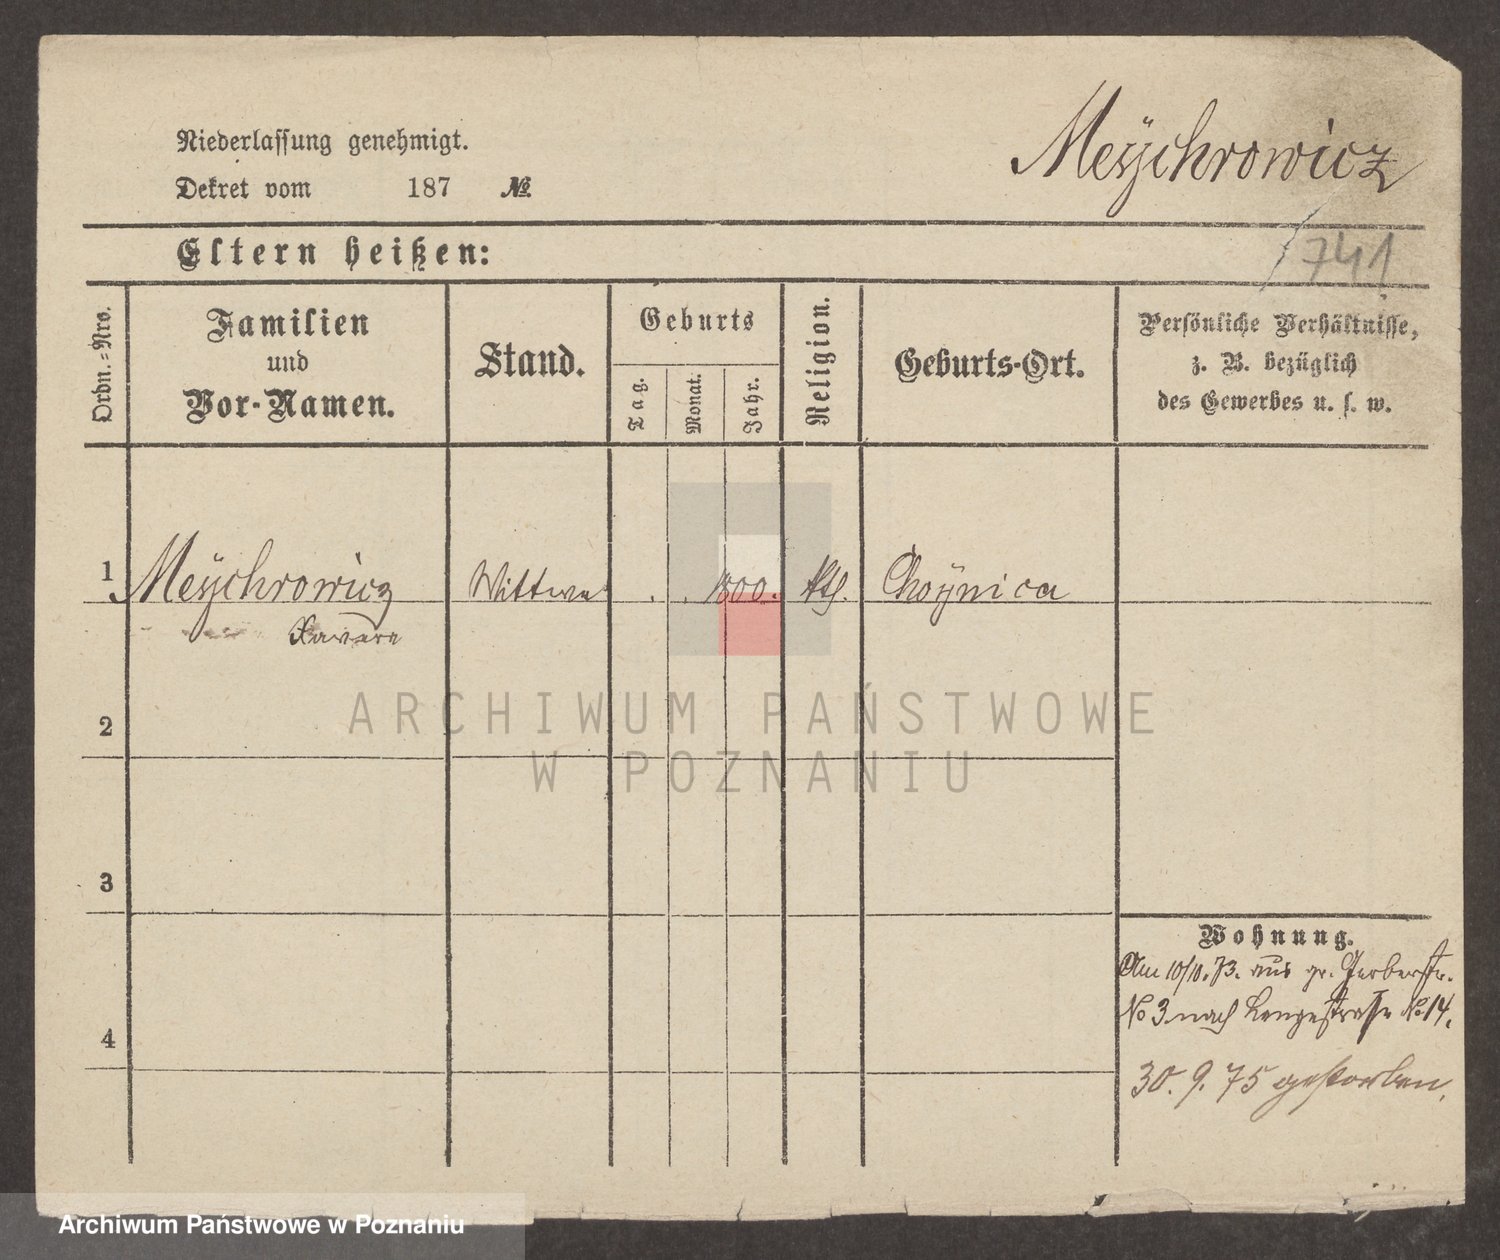 Niederlassung genehmigt.
Meÿchrowicz
Dekret vom 187 №
741
Eltern heißen:
Ordn.-Nrs.
Familien
und
Vor-Namen.
Stand.
Geburts
Tag.
Monat.
Jahr.
Religion.
Geburts-Ort.
Persönliche Verhältnisse,
z. B. bezüglich
des Gewerbes u. s. w.
1 Meÿchrowicz Wittwe . . 1800. kth. Choÿnica
Xavera
2
3
4
Wohnung.
Am 10/10.73. aus gr. Gerberstr.
No 3 nach Langestrasse No 14.
30.9.75 gestorben.
ARCHIWUM PAŃSTWOWE
W POZNANIU
Archiwum Państwowe w Poznaniu